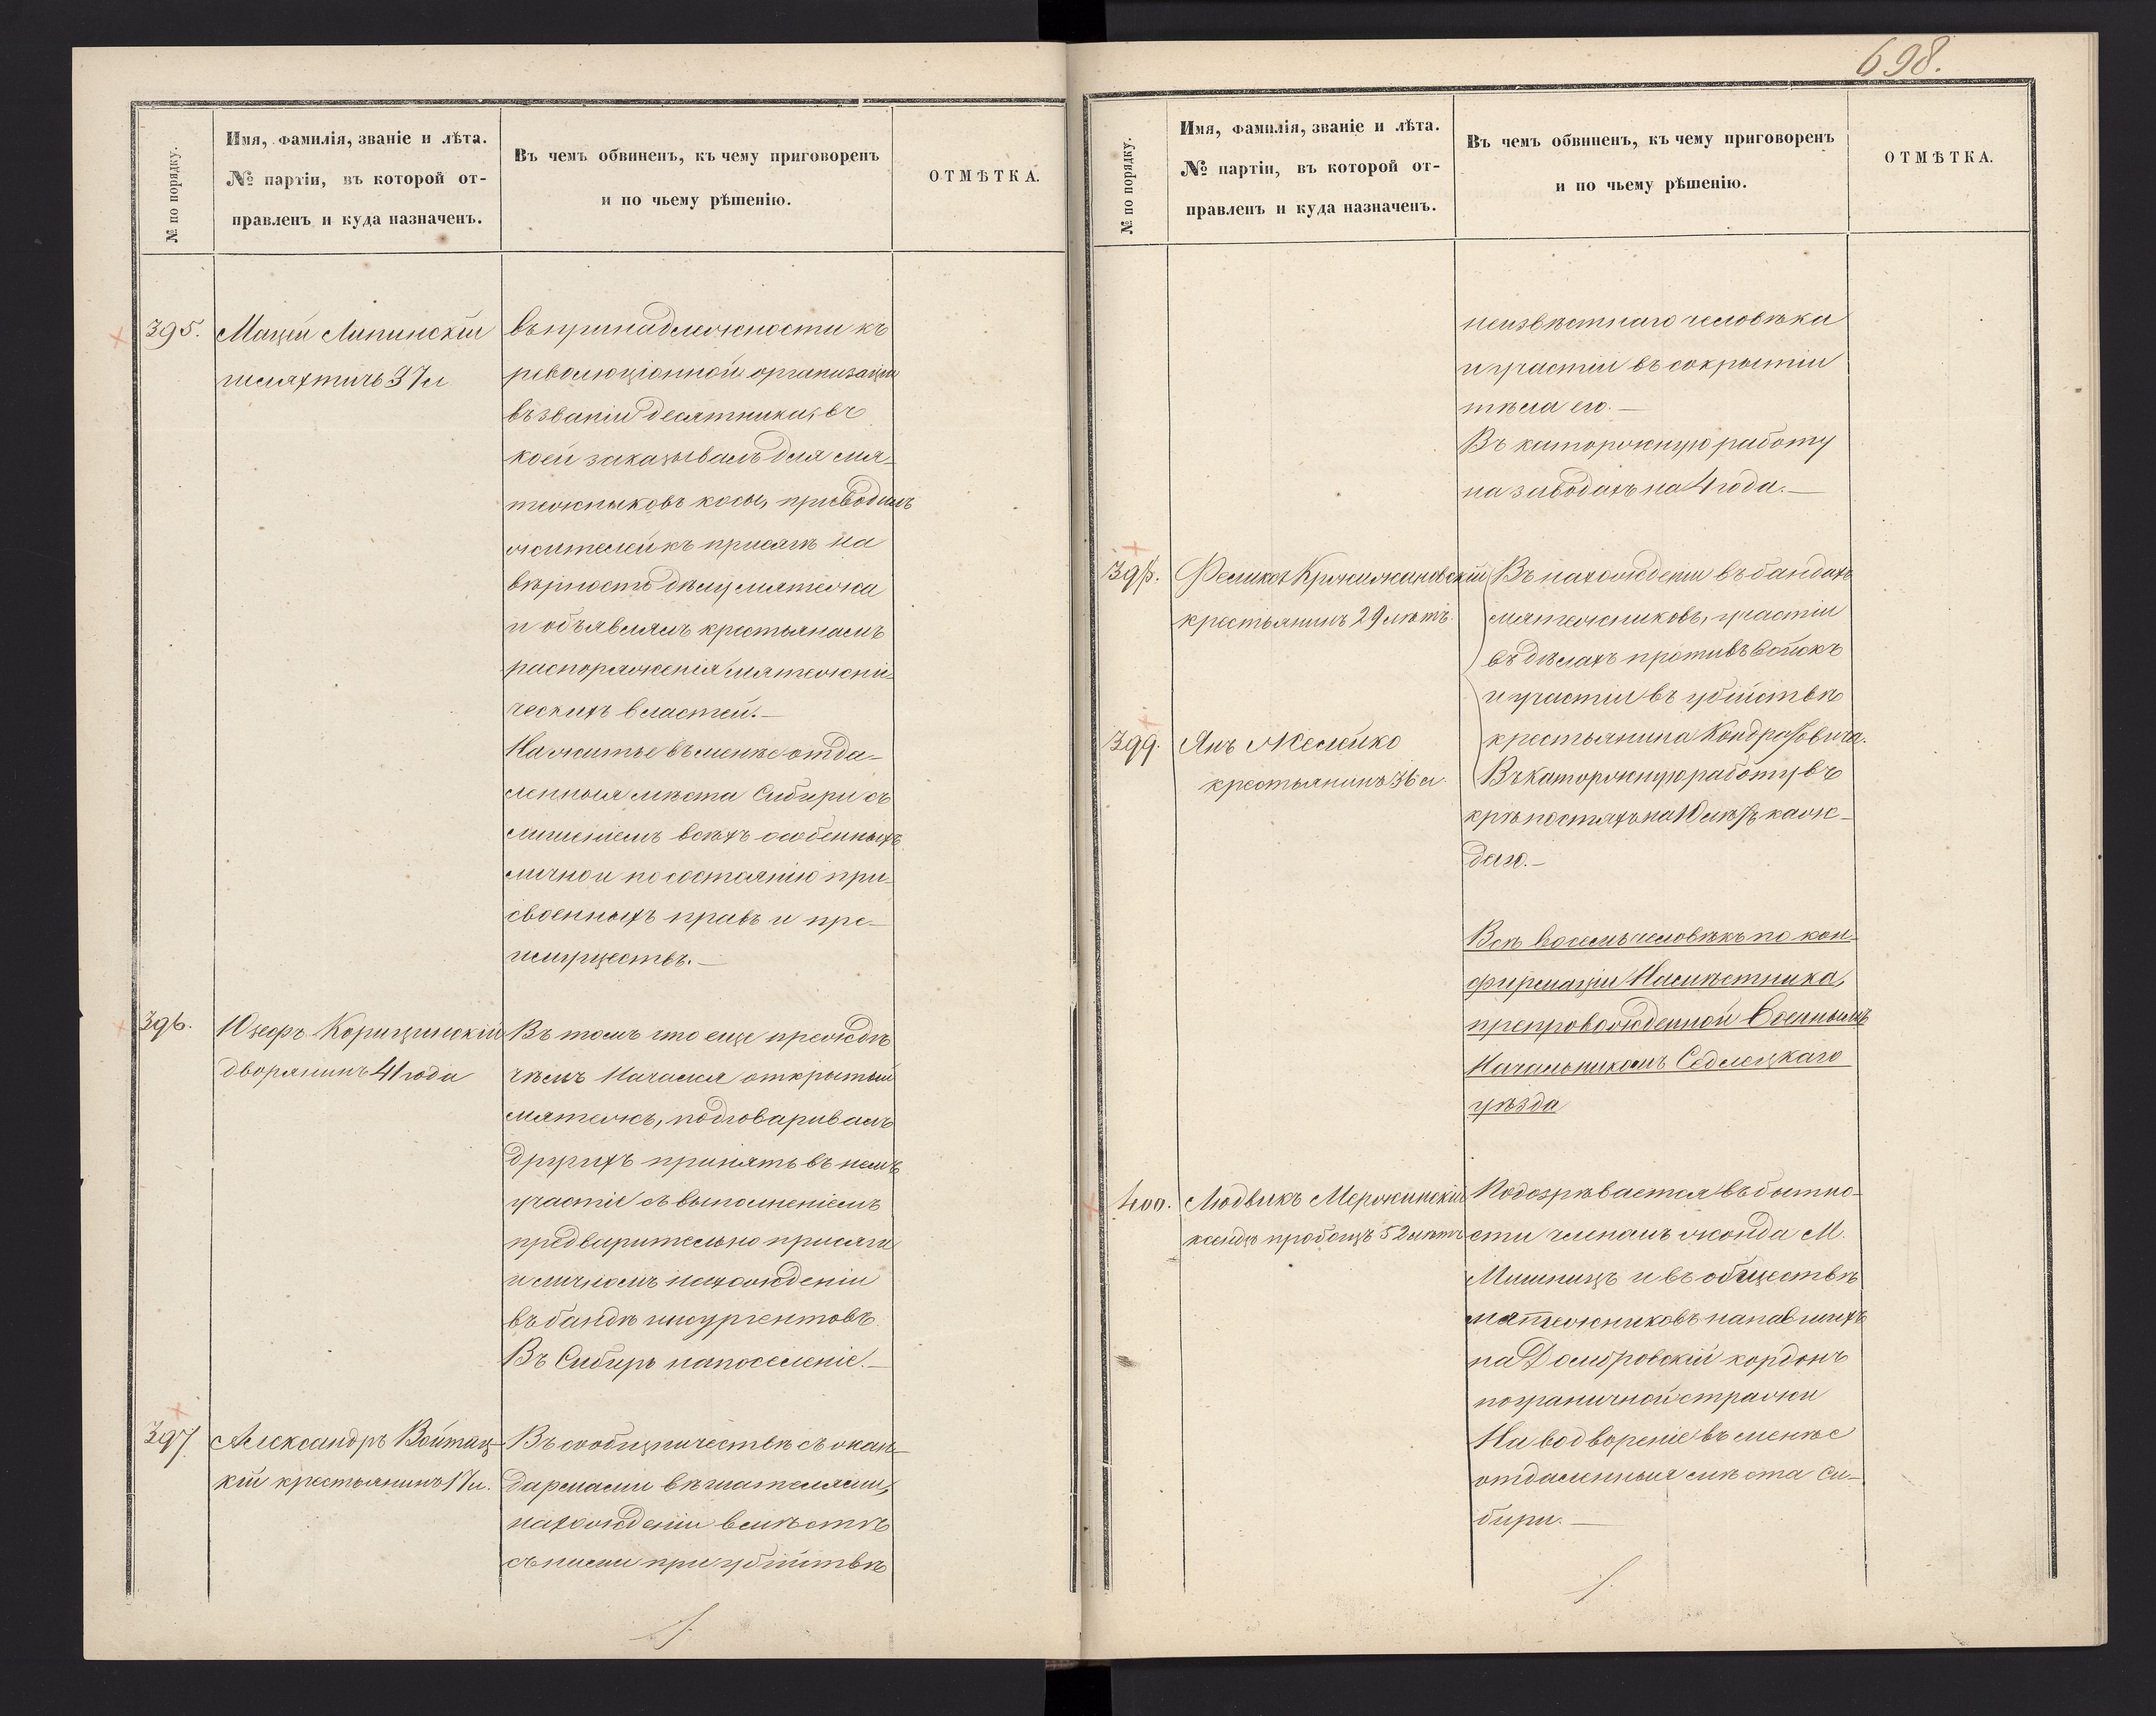 698.
№ по порядку.
Имя, фамилія, званіе и лѣта.
№ партіи, въ которой от-
правленъ и куда назначенъ.
Въ чемъ обвиненъ, къ чему приговоренъ
и по чьему рѣшенію.
ОТМѢТКА.
395.
Мацей Липинскій
шляхтичъ 37 л
въ принадлежности къ
революціонной организаціи
въ званіи десятника, въ
коей заказывалъ для мя-
тежниковъ косы, приводилъ
жителей къ присягѣ на
вѣрность дѣлу мятежа
и объявлялъ крестьянамъ
распоряженія мятежни-
ческихъ властей.—
На житье въ менѣе отда-
ленныя мѣста Сибири съ
лишеніемъ всѣхъ особенныхъ
лично и по состоянію при-
своенныхъ правъ и пре-
имуществъ.—
396.
Юзефъ Корицинскій
дворянинъ 41 года
Въ томъ что еще прежде
чѣмъ начался открытый
мятежъ, подговаривалъ
другихъ принять въ немъ
участіе съ выполненіемъ
предварительно присяги
и личномъ нахожденіи
въ бандѣ инсургентовъ.
Въ Сибирь на поселеніе.—
397
Александръ Войтац-
кій крестьянинъ 17 л.
Въ сообщничествѣ съ жан-
дармами вѣшателями,
нахожденіи вмѣстѣ
съ ними при убійствѣ
№ по порядку.
Имя, фамилія, званіе и лѣта.
№ партіи, въ которой от-
правленъ и куда назначенъ.
Въ чемъ обвиненъ, къ чему приговоренъ
и по чьему рѣшенію.
ОТМѢТКА.
неизвѣстнаго человѣка
и участіи въ сокрытіи
тѣла его.—
Въ каторжную работу
на заводахъ на 4 года.—
398.
Феликсъ Кржижановскій
крестьянинъ 29 лѣтъ.
399.
Янъ Желейко
крестьянинъ 36 л.
Въ нахожденіи въ бандахъ
мятежниковъ, участіи
въ дѣлахъ противъ войскъ
и участіи въ убійствѣ
крестьянина Кондратовича.
Въ каторжную работу въ
крѣпостяхъ на 10 лѣтъ каж-
даго.—
Всѣ восемь человѣкъ по кон-
фирмаціи Намѣстника,
препровожденной Военнымъ
Начальникомъ Седлецкаго
уѣзда
400.
Людвикъ Мержинскій
ксендзъ пробощъ 52 лѣтъ
Подозрѣвается въ бытно-
сти членомъ жонда М.
Мишинцъ и въ обществѣ
мятежниковъ напавшихъ
на Домбровскій кордонъ
пограничной стражи
На водвореніе въ менѣе
отдаленныя мѣста Си-
бири.—